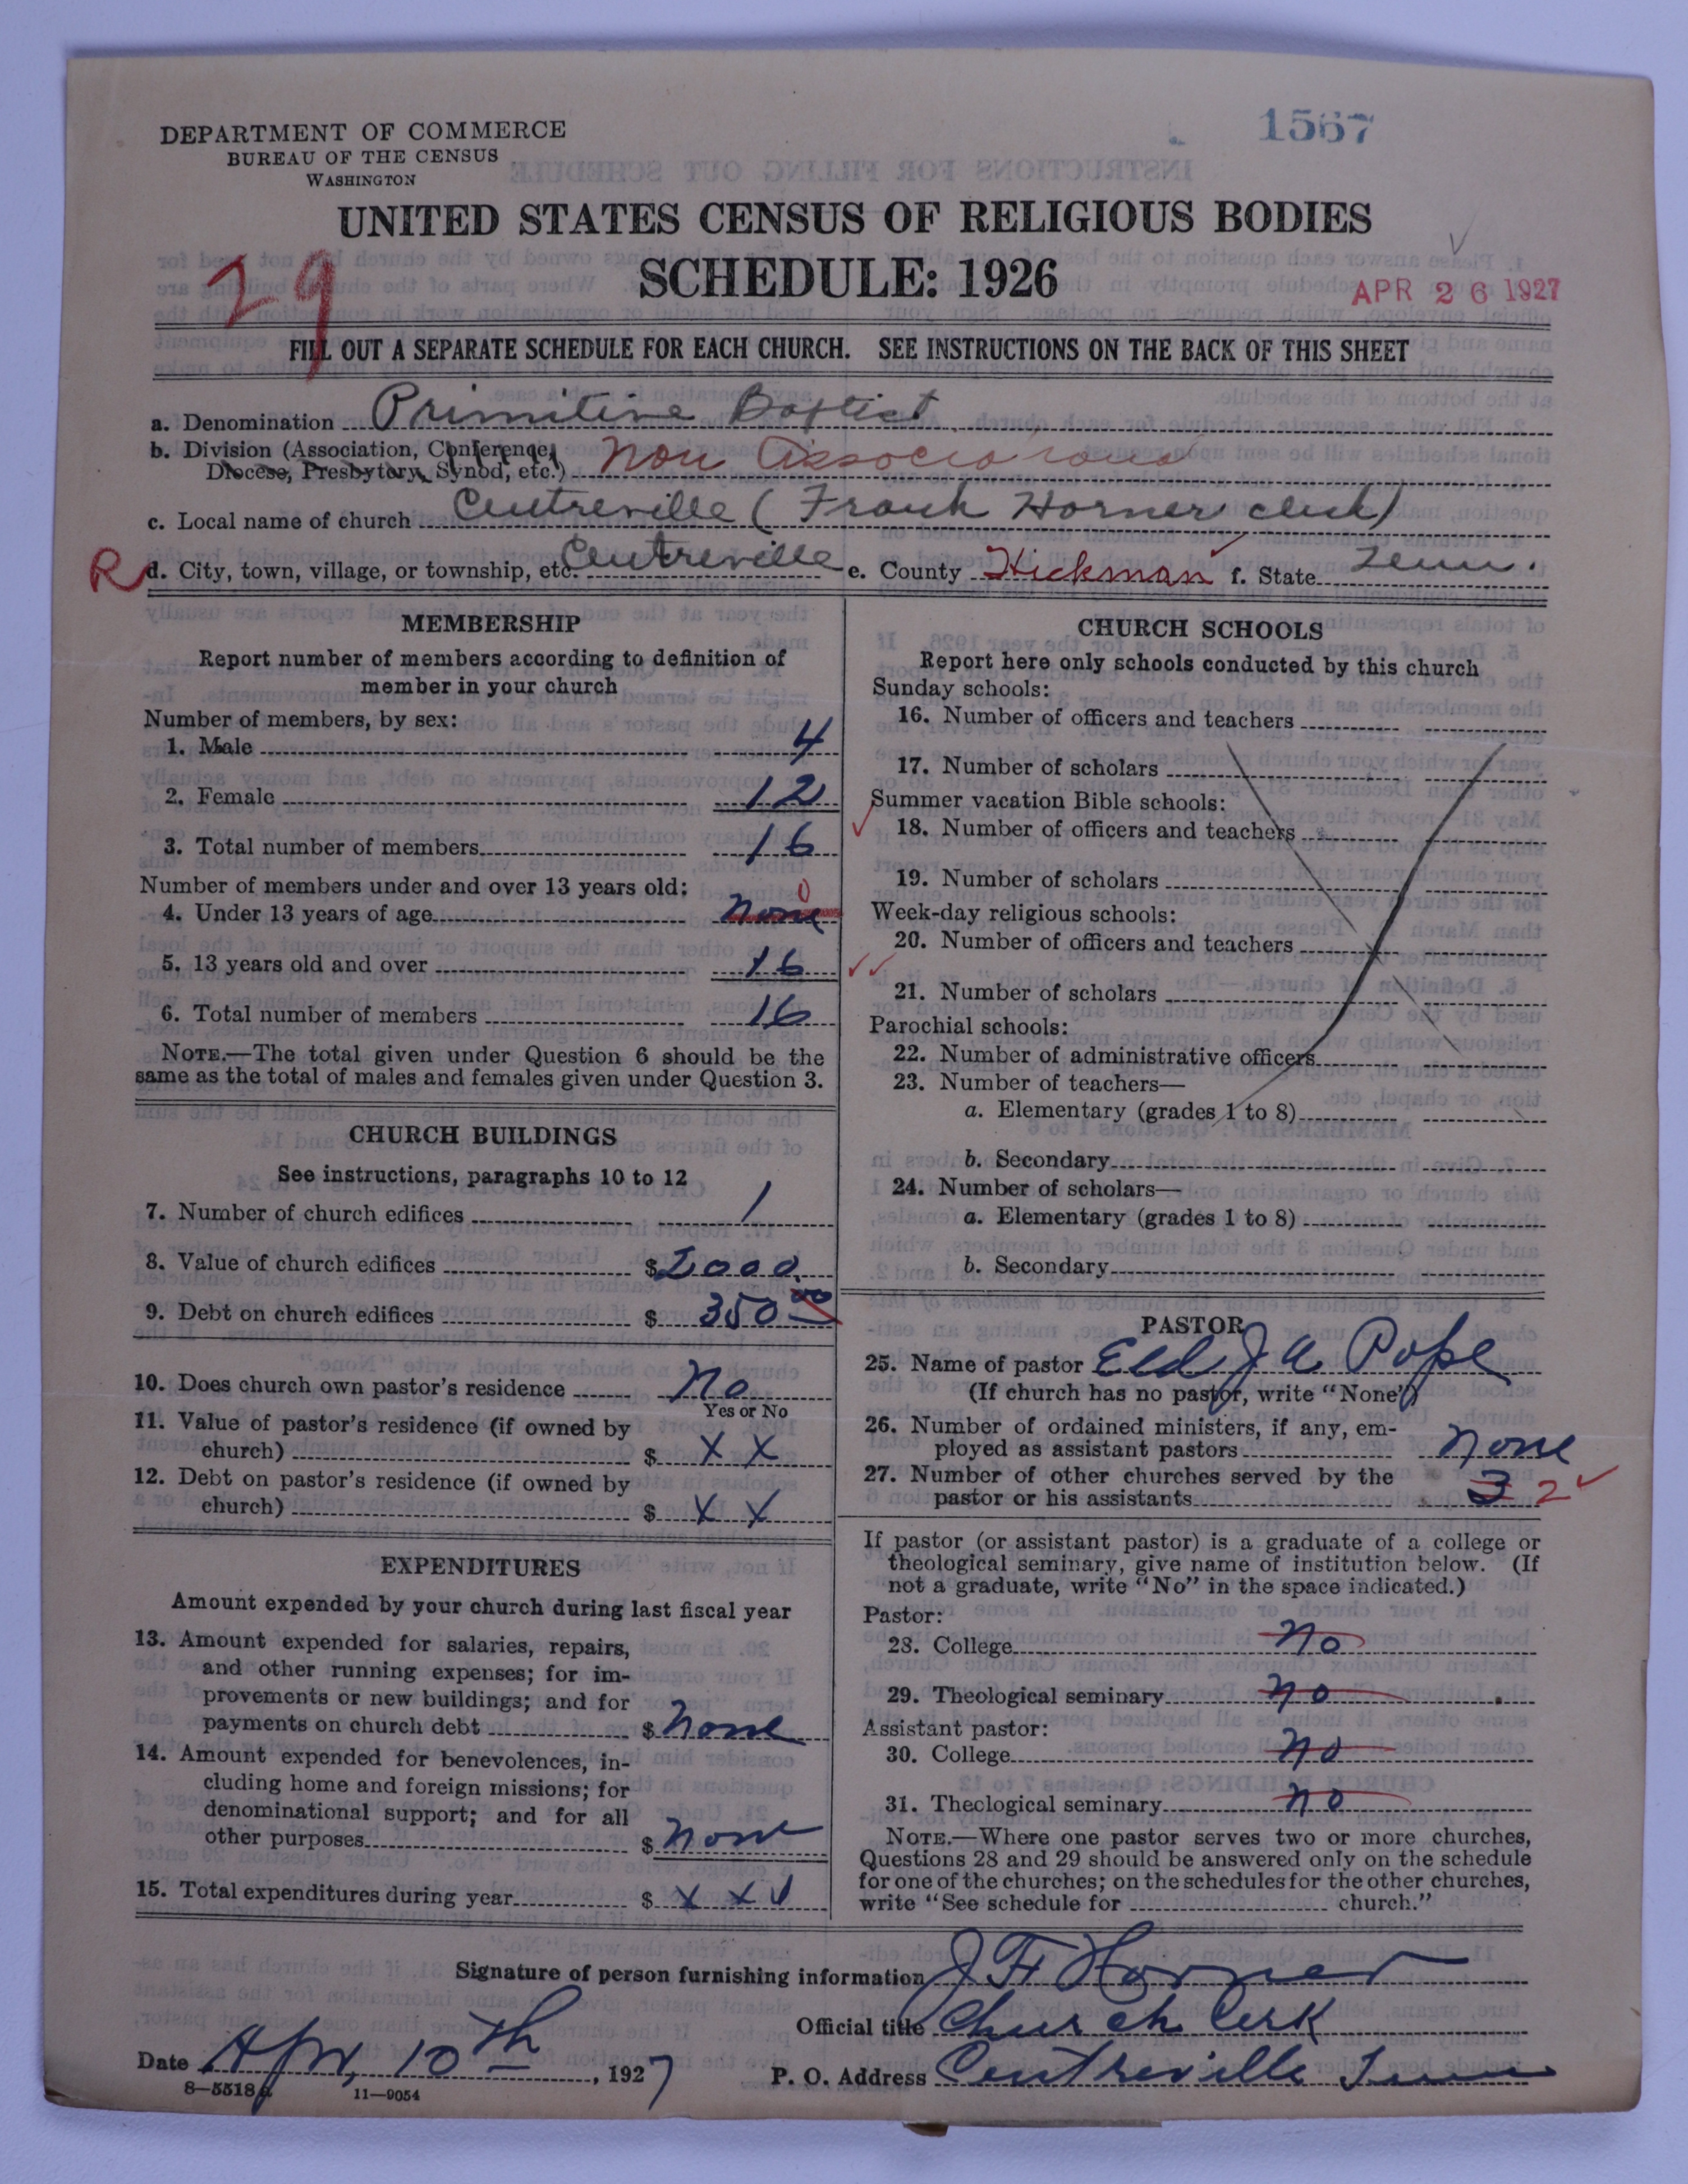 1567
DEPARTMENT OF COMMERCE
BUREAU OF THE CENSUS
WASHINGTON
UNITED STATES CENSUS OF RELIGIOUS BODIES
SCHEDULE: 1926
29
APR 26 1927
FILL OUT A SEPARATE SCHEDULE FOR EACH CHURCH. SEE INSTRUCTIONS ON THE BACK OF THIS SHEET
a. Denomination Primitive Baptist
b. Division (Association, Conference,
Diocese, Presbytery, Synod, etc.) Non Associational
c. Local name of church Centreville (Frank Horner clerk)
R d. City, town, village, or township, etc. Centreville e. County Hickman f. State Tenn.
MEMBERSHIP
Report number of members according to definition of
member in your church
Number of members, by sex:
1. Male 4
2. Female 12
3. Total number of members 16
Number of members under and over 13 years old:
0
4. Under 13 years of age None
5. 13 years old and over 16
6. Total number of members 16
NOTE.—The total given under Question 6 should be the
same as the total of males and females given under Question 3.
CHURCH BUILDINGS
See instructions, paragraphs 10 to 12
7. Number of church edifices 1
8. Value of church edifices $2000
9. Debt on church edifices $ 350 00
10. Does church own pastor's residence No
Yes or No
11. Value of pastor's residence (if owned by
church) $ X X
12. Debt on pastor's residence (if owned by
church) $ X X
EXPENDITURES
Amount expended by your church during last fiscal year
13. Amount expended for salaries, repairs,
and other running expenses; for im-
provements or new buildings; and for
payments on church debt $ None
14. Amount expended for benevolences, in-
cluding home and foreign missions; for
denominational support; and for all
other purposes $ None
15. Total expenditures during year $ X X
CHURCH SCHOOLS
Report here only schools conducted by this church
Sunday schools:
16. Number of officers and teachers
17. Number of scholars
Summer vacation Bible schools:
18. Number of officers and teachers
19. Number of scholars
Week-day religious schools:
20. Number of officers and teachers
21. Number of scholars
Parochial schools:
22. Number of administrative officers
23. Number of teachers—
a. Elementary (grades 1 to 8)
b. Secondary
24. Number of scholars—
a. Elementary (grades 1 to 8)
b. Secondary
PASTOR
25. Name of pastor Eld J A Pope
(If church has no pastor, write "None")
26. Number of ordained ministers, if any, em-
ployed as assistant pastors None
27. Number of other churches served by the
pastor or his assistants 3 2
If pastor (or assistant pastor) is a graduate of a college or
theological seminary, give name of institution below. (If
not a graduate, write "No" in the space indicated.)
Pastor:
28. College No
29. Theological seminary No
Assistant pastor:
30. College No
31. Theological seminary No
NOTE.—Where one pastor serves two or more churches,
Questions 28 and 29 should be answered only on the schedule
for one of the churches; on the schedules for the other churches,
write "See schedule for church."
Signature of person furnishing information J F Horner
Official title Church Clerk
Date Apr, 10th, 1927 P. O. Address Centreville Tenn
8—5518a 11—9054